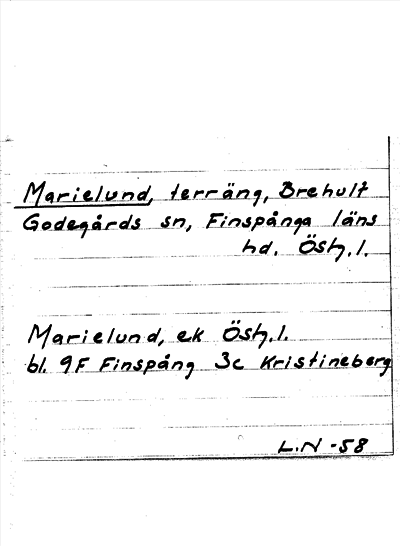 Marielund, terräng, Brehult
Godegårds sn, Finspånga läns
hd. Östg.l.
Marielund, ek Östg.l.
bl. 9F Finspång 3c Kristineberg
L.N -58